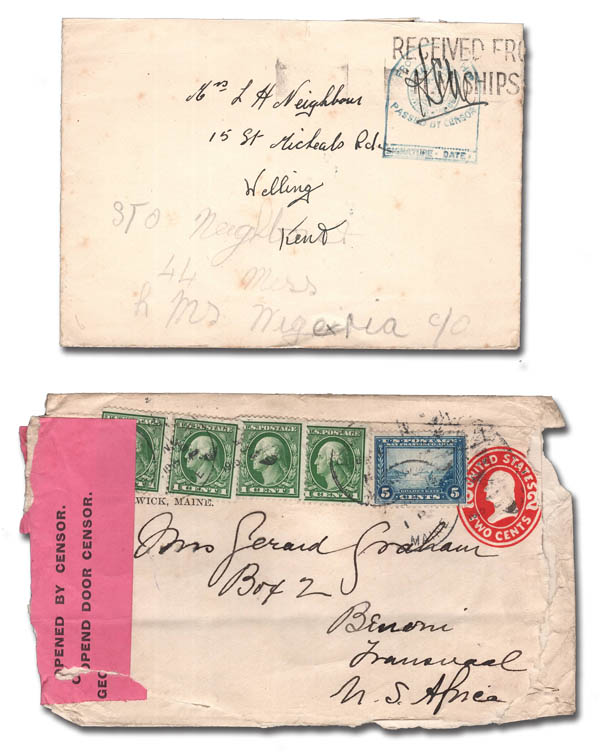 RECEIVED FRO
H.M. SHIPS
PASSED BY CENSOR
SIGNATURE · DATE
Mrs L H Neighbour
15 St Micheals Rd.
Welling
Kent
STO Neighbour
44 Mess
h Ms Nigeria c/o
U.S. POSTAGE
1 CENT 1
U.S. POSTAGE
1 CENT 1
U.S. POSTAGE
1 CENT 1
U.S. POSTAGE
SAN FRANCISCO 1915
GOLDEN GATE
5 CENTS 5
UNITED STATES
TWO CENTS
WICK, MAINE.
OPENED BY CENSOR.
OOPEND DOOR CENSOR.
GEO
Mrs Gerard Graham
Box 2
Benoni
Transvaal
U. S. Africa